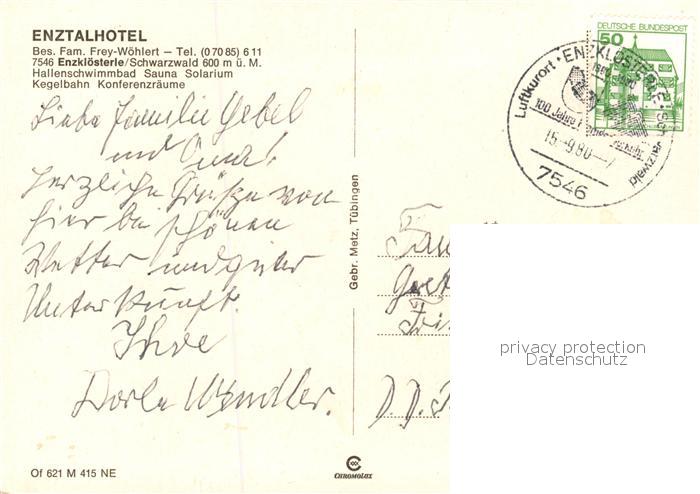 ENZTALHOTEL
Bes. Fam. Frey-Wöhlert – Tel. (0 70 85) 6 11
7546 Enzklösterle/Schwarzwald 600 m ü. M.
Hallenschwimmbad Sauna Solarium
Kegelbahn Konferenzräume
Liebe Familie Gebel
und Oma!
Herzliche Grüße von
hier bei schönen
Wetter und guter
Unterkunft.
Ihre
Dorle
Of 621 M 415 NE
Gebr. Metz, Tübingen
CHROMOLUX
DEUTSCHE BUNDESPOST
50
Luftkurort · ENZKLÖSTERLE · Schwarzwald
100 Jahre
15.-9.80.--7
7546
Fam
D.D.
privacy protection
Datenschutz